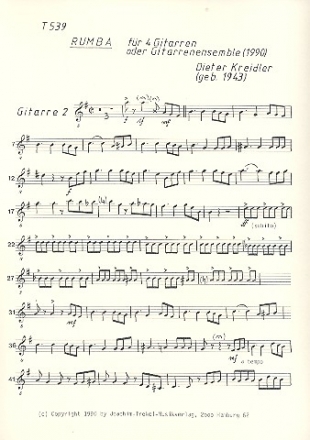 T 539
RUMBA für 4 Gitarren
oder Gitarrenensemble (1990)
Dieter Kreidler
(geb. 1943)
Gitarre 2
(m)
f sf mf
7
12
f f
17
ff (subito)
22
27
31
mf
36
(m)
mf a tempo
41
(c) Copyright 1990 by Joachim-Trekel-Musikverlag, 2000 Hamburg 62